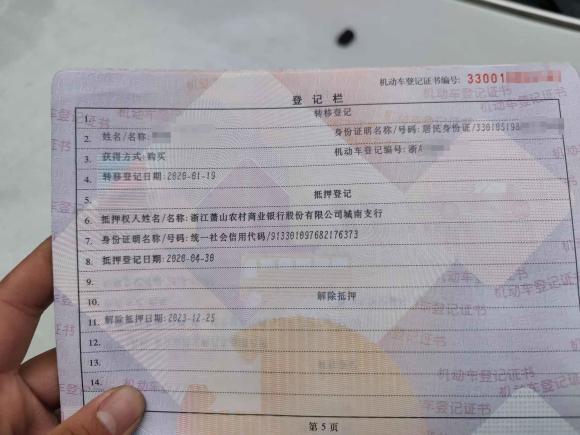 机动车登记证书编号: 33001
登记栏
1. 转移登记
2. 姓名/名称: 身份证明名称/号码: 居民身份证/330105198
3. 获得方式: 购买 机动车登记编号: 浙A
4. 转移登记日期: 2020-01-19
5. 抵押登记
6. 抵押权人姓名/名称: 浙江萧山农村商业银行股份有限公司城南支行
7. 身份证明名称/号码: 统一社会信用代码/913301097682176373
8. 抵押登记日期: 2020-04-30
9.
10. 解除抵押
11. 解除抵押日期: 2023-12-25
12.
13.
14.
第5页
机动车登记证书